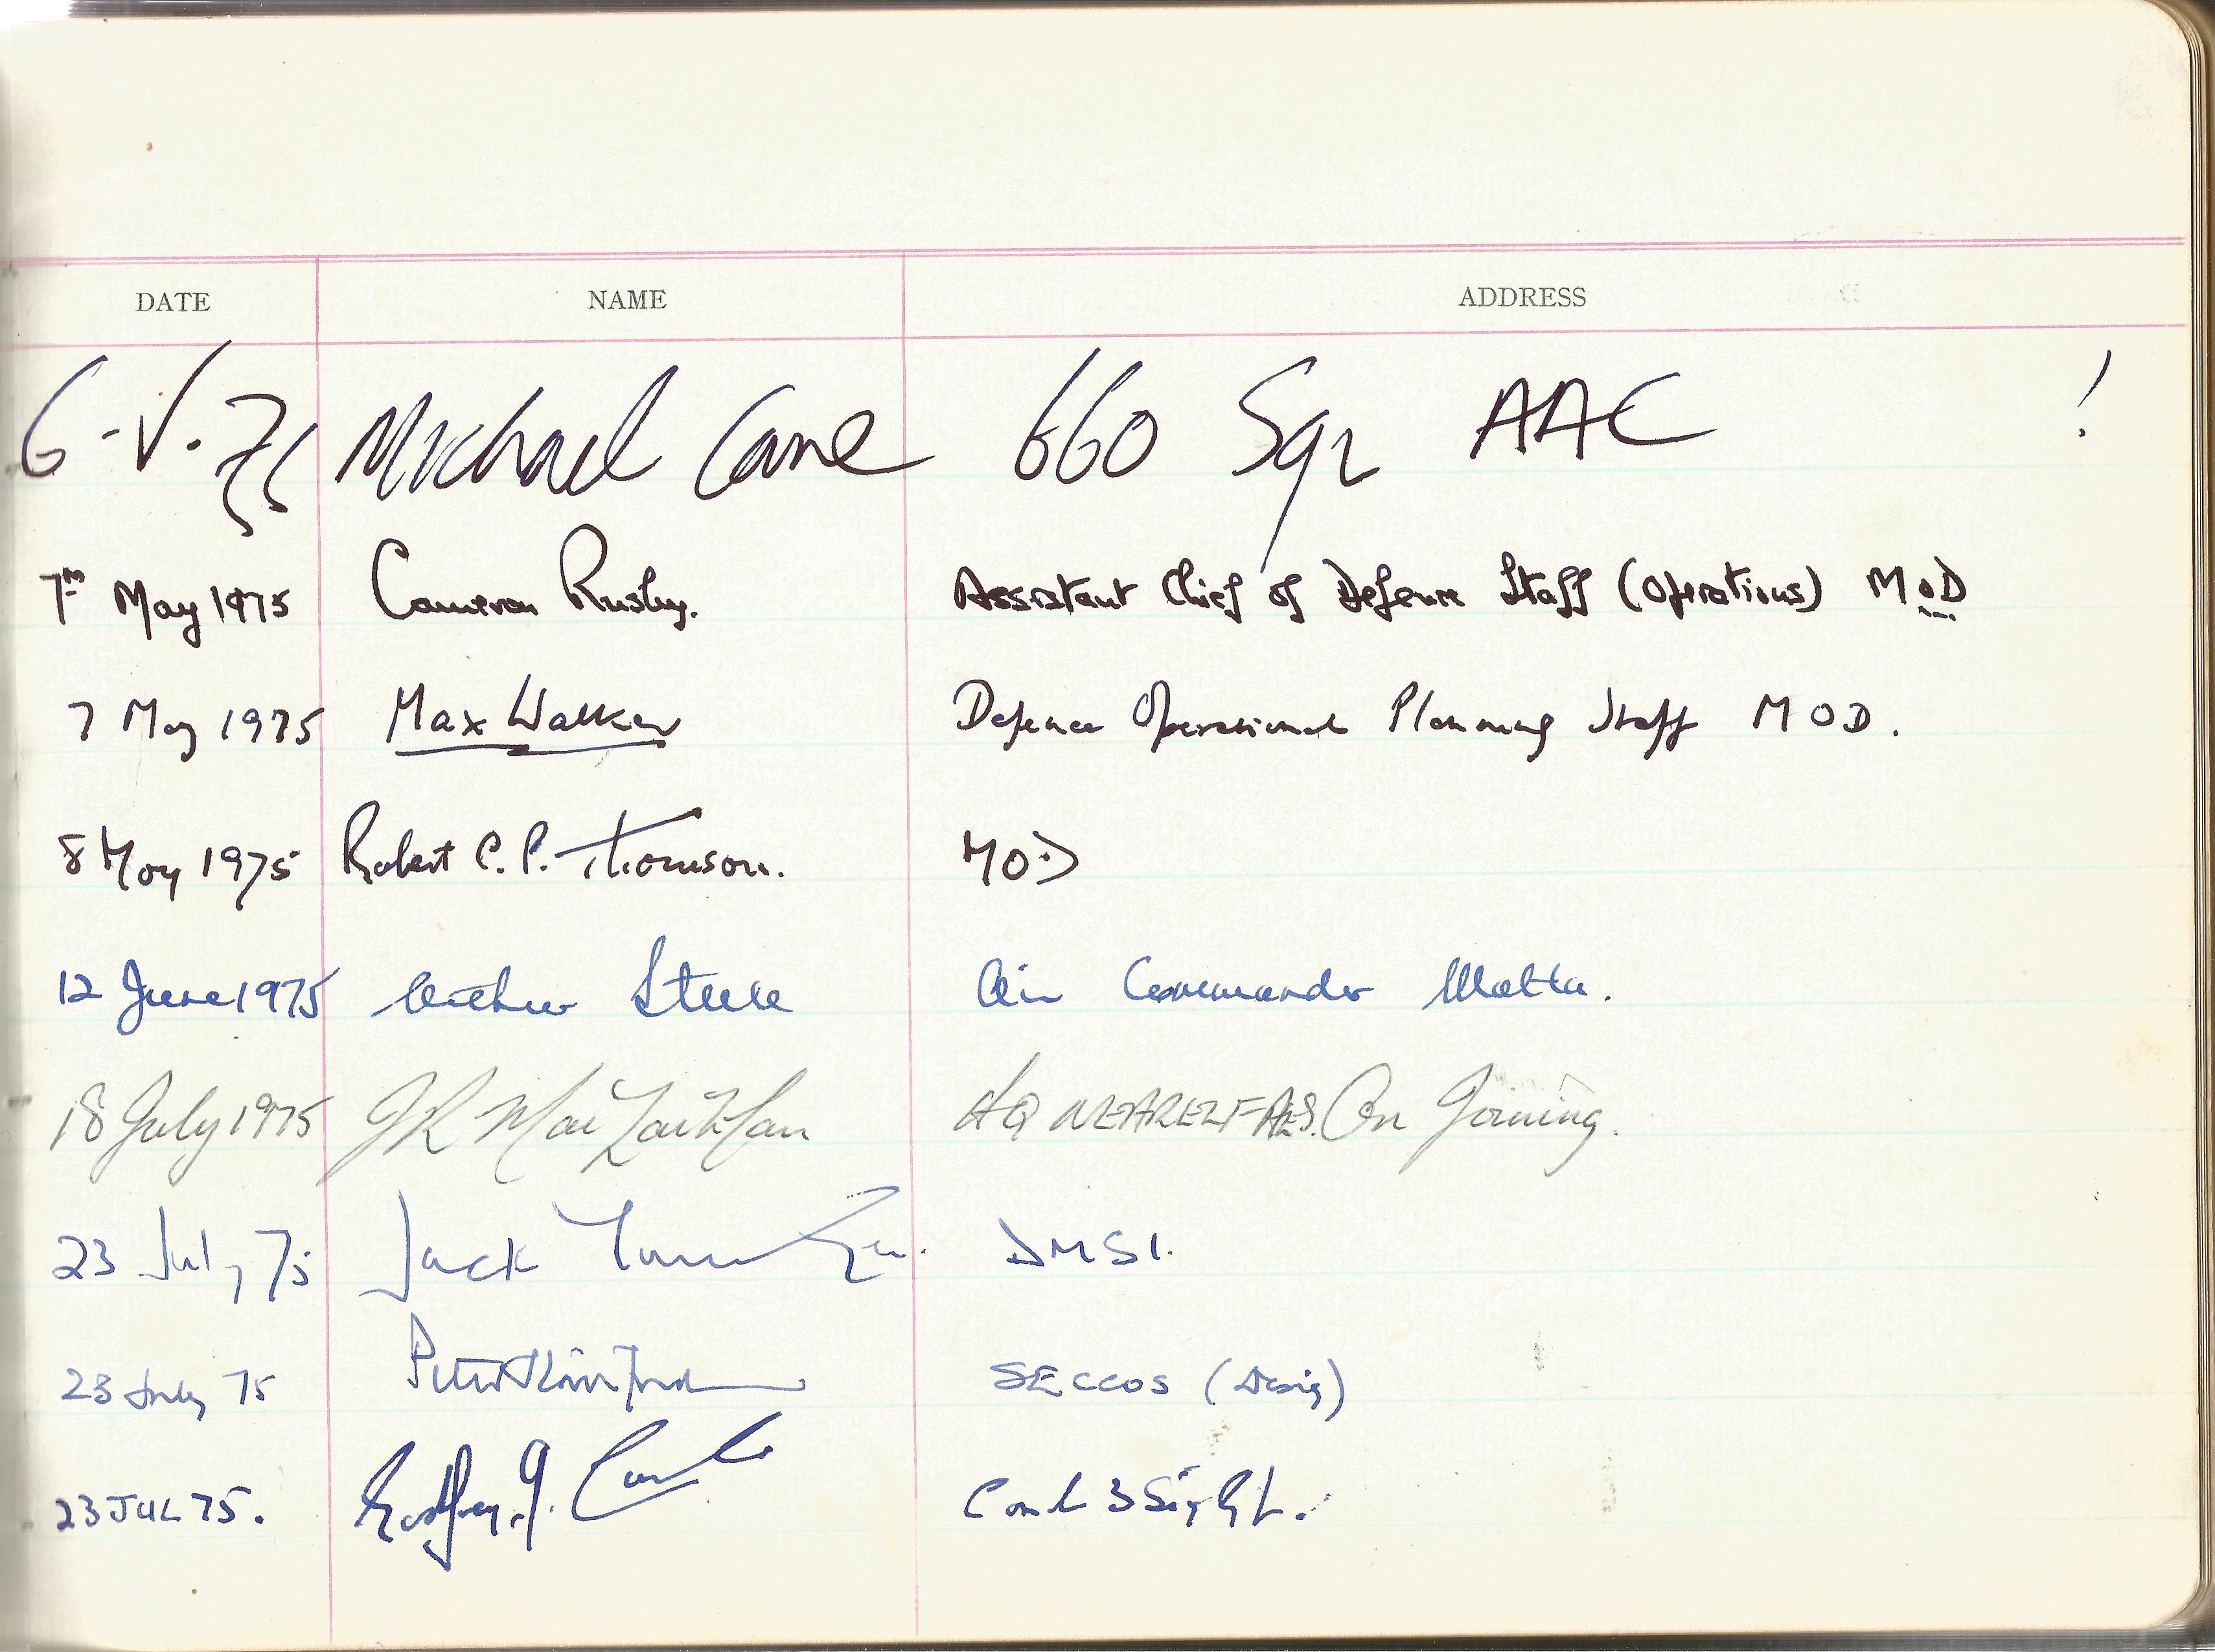 DATE NAME ADDRESS
6-V.75 Michael Cane 660 Sqn AAC !
7th May 1975 Cameron Rusby. Assistant Chief of Defence Staff (Operations) MoD
7 May 1975 Max Walker Defence Operational Planning Staff MOD.
8 May 1975 Robert C. P. Thomson. MOD
12 June 1975 Arthur Steele Air Commander Malta.
18 July 1975 JR HQ NEARELF AES. On Joining.
23 July 75 Jack DMSI.
23 July 75 Peter SECCOS (Desig)
23 JUL 75. Godfrey. J. Comd 3 Sig